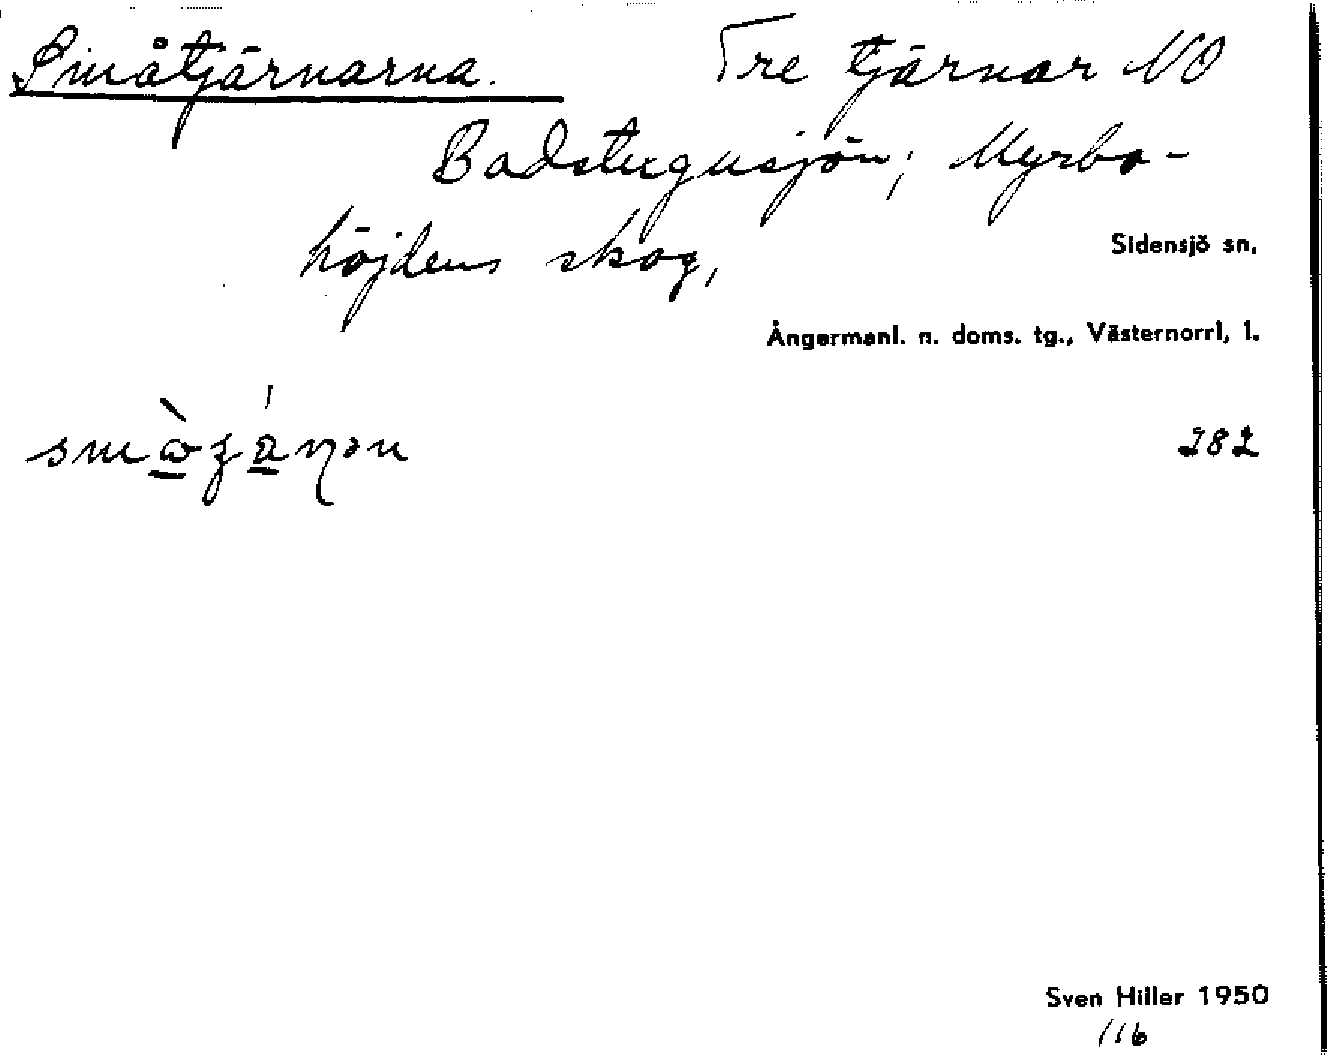 Småtjärnarna. Tre tjärnar NO
Badstugusjön; Myrbo-
höjdens skog,
Sidensjö sn,
Ångermanl. n. doms. tg., Västernorrl, l.
282
Sven Hiller 1950
116